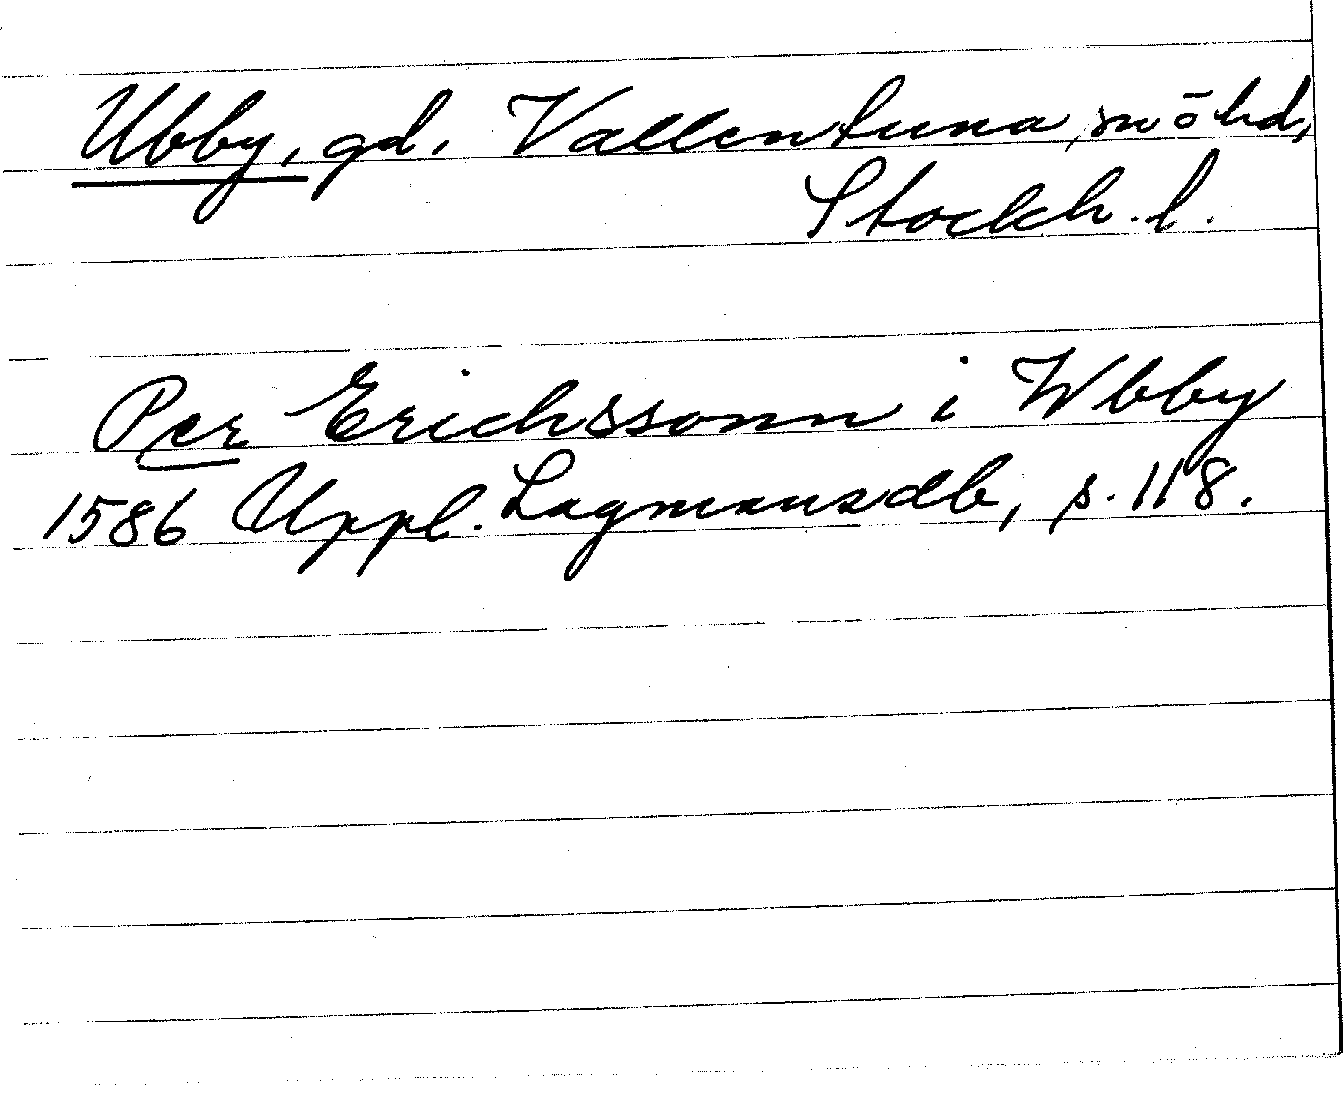 Ubby, gd. Vallentuna, sn o hd,
Stockh. l.
Per Erichssonn i Wbby
1586 Uppl. Lagmansdb, s. 118.